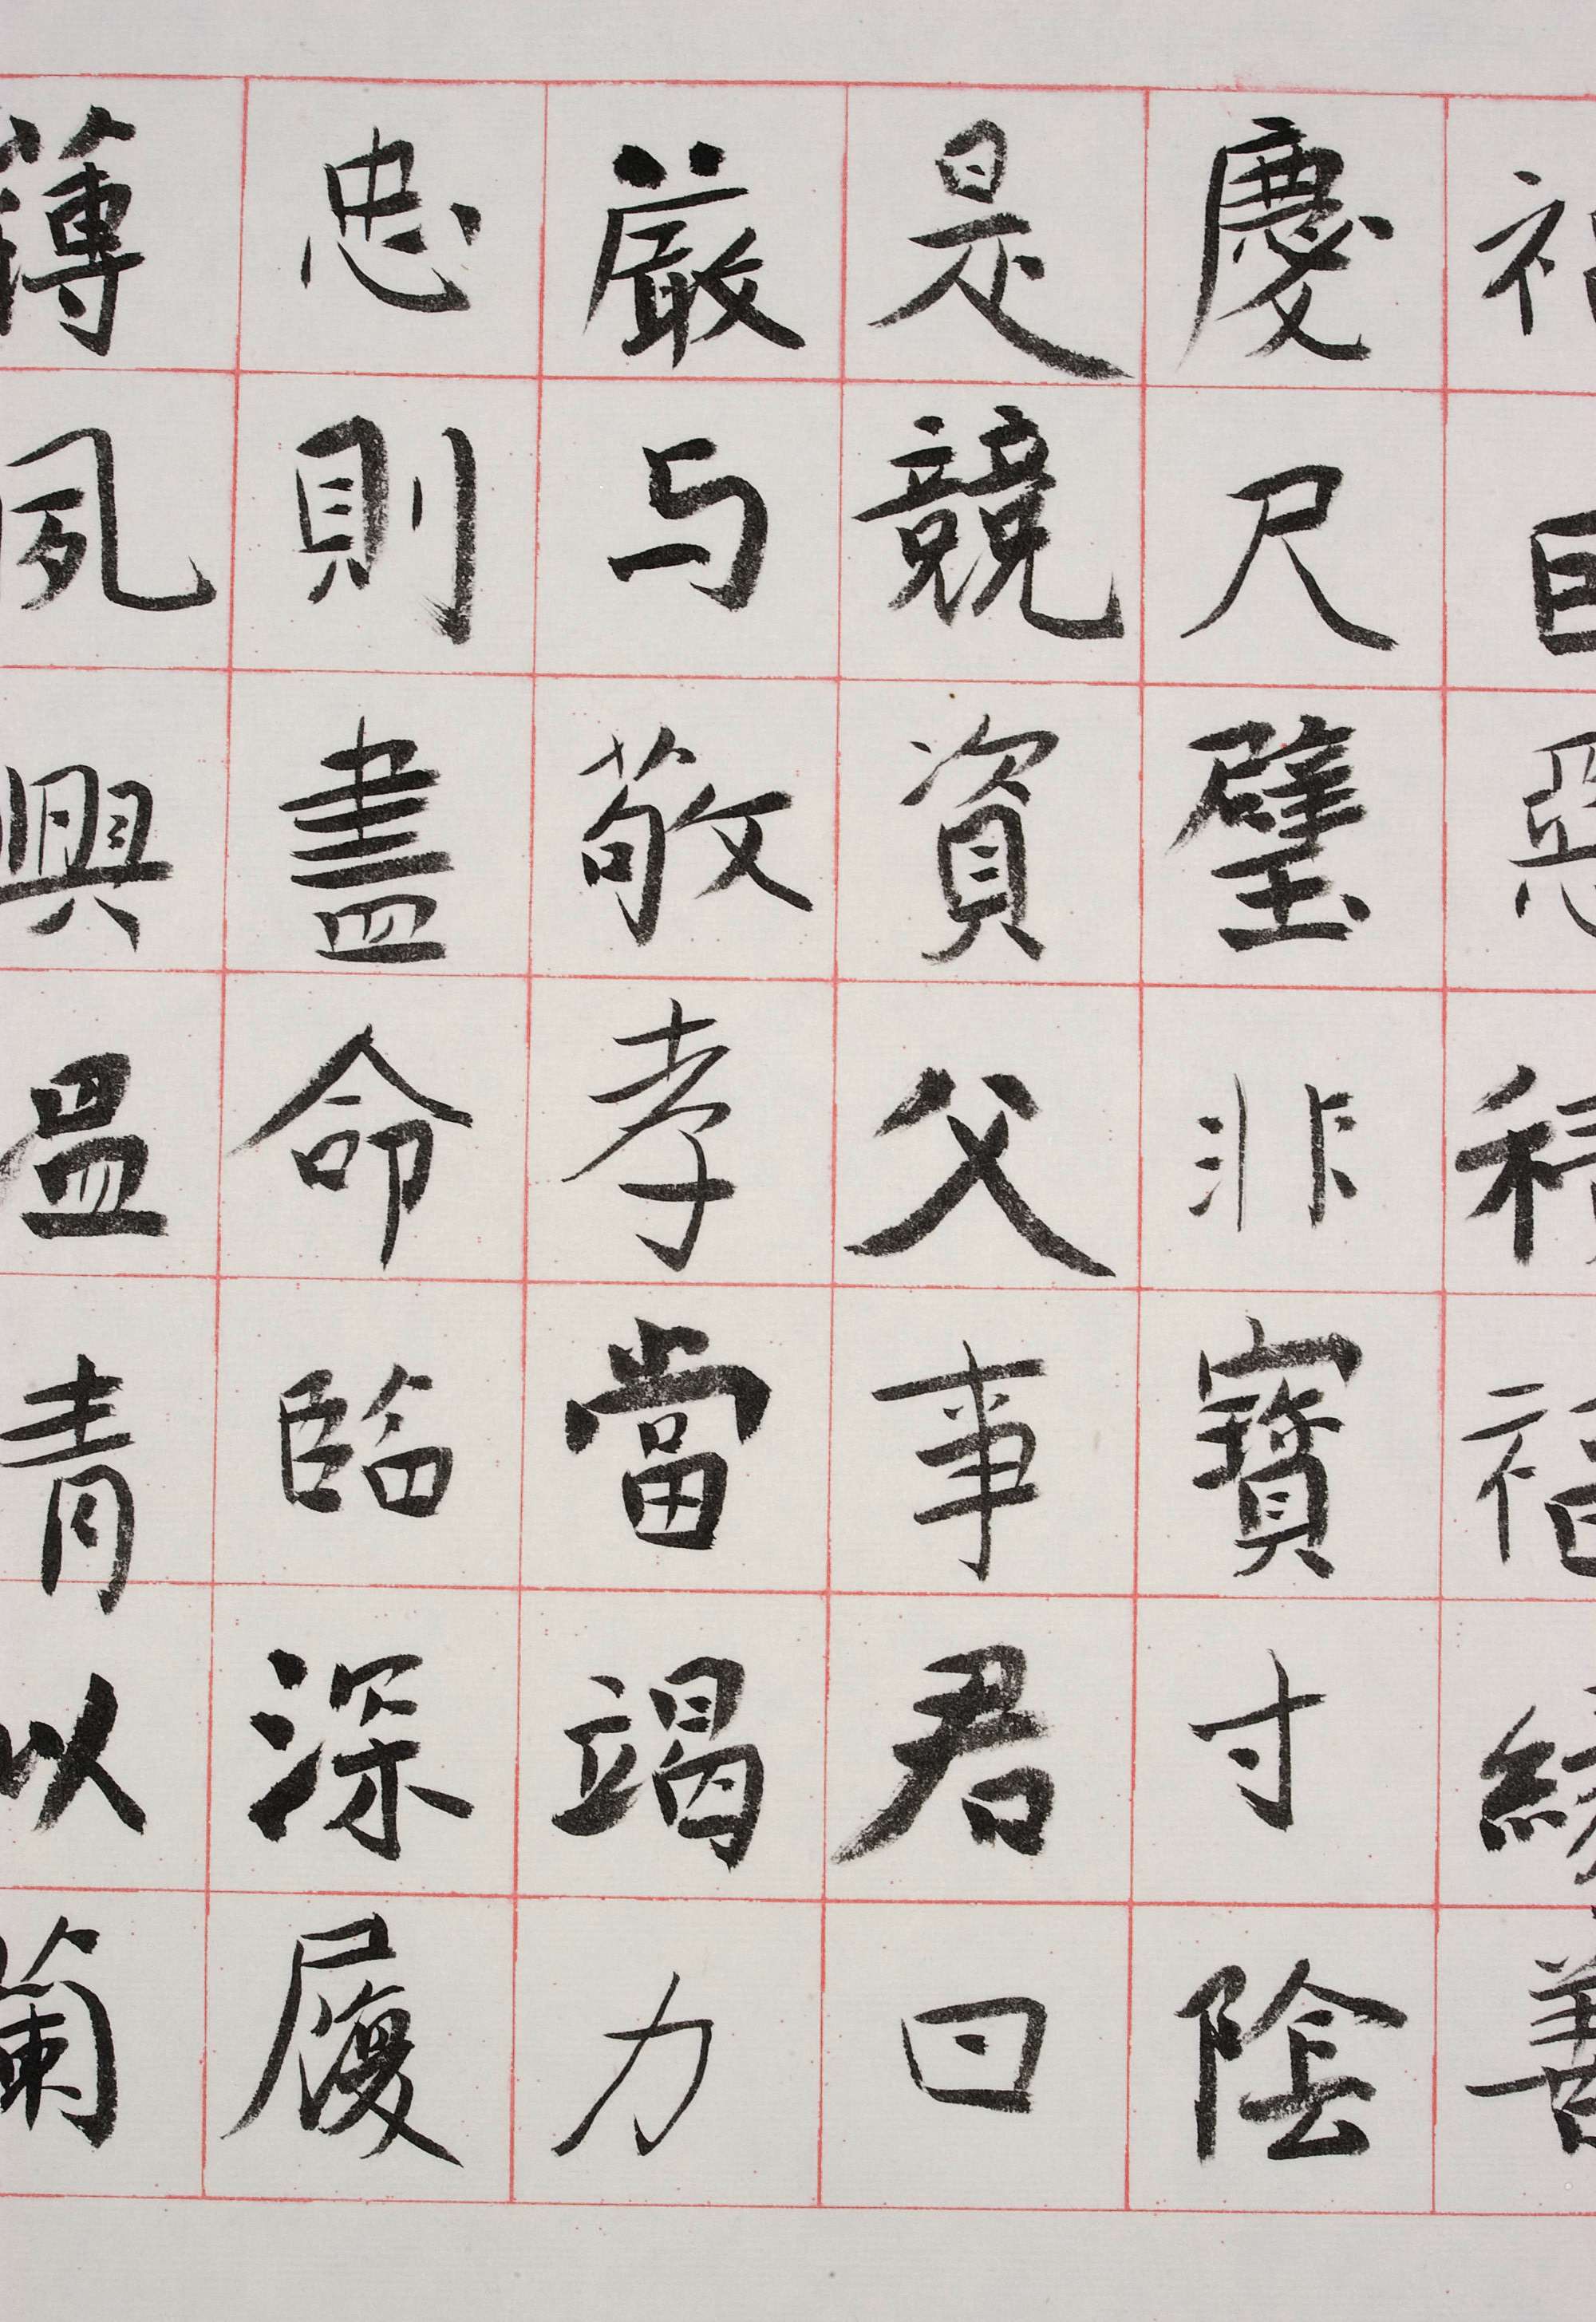 禍因惡積福緣善
慶尺璧非寶寸陰
是競資父事君曰
嚴与敬孝當竭力
忠則盡命臨深履
薄夙興温清似蘭